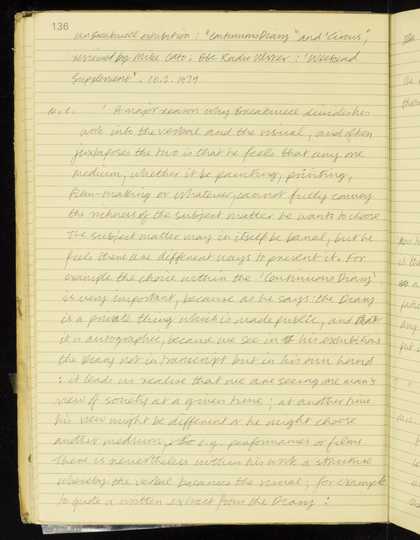 136
Ian Breakwell exhibition: "Continuous Diary" and 'Circus',
reviewed by Mike Cato: BBC Radio Ulster: 'Weekend
Supplement'. 10.2.1979
M.C. 'A major reason why Breakwell divides his
work into the verbal and the visual, and often
juxtaposes the two is that he feels that any one
medium, whether it be painting, printing,
film-making or whatever, cannot fully convey
the richness of the subject matter he wants to choose
The subject matter may in itself be banal, but he
feels there are different ways to present it. For
example the choice within the 'Continuous Diary'
is very important, because as he says: the Diary
is a private thing which is made public, and that
it is autographic, because we see in his exhibitions
the diary not in transcript but in his own hand
: it leads us realise that we are seeing one man's
view of society at a given time; at another time
his view might be different or he might choose
another medium, e.g. performance or film.
There is nevertheless within his work a structure
whereby the verbal becomes the visual, for example
to quote a written extract from the Diary: